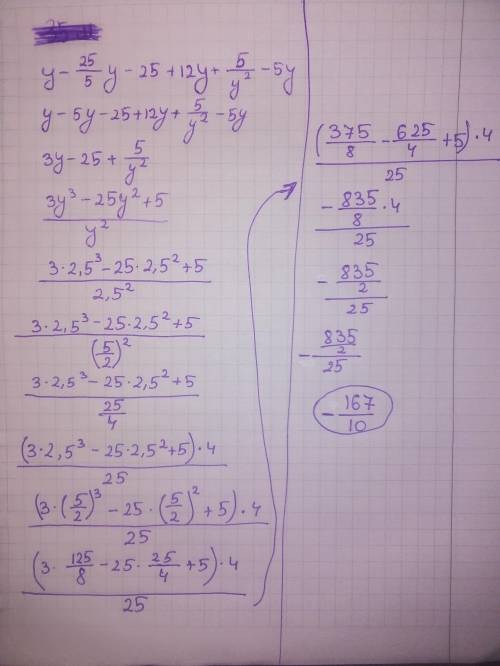 y - 25/5 y - 25 + 12y + 5/y² - 5y
y - 5y - 25 + 12y + 5/y² - 5y
3y - 25 + 5/y²
(3y³ - 25y² + 5)/y²
(3·2,5³ - 25·2,5² + 5)/2,5²
(3·2,5³ - 25·2,5² + 5)/(5/2)²
(3·2,5³ - 25·2,5² + 5)/(25/4)
((3·2,5³ - 25·2,5² + 5)·4)/25
((3·(5/2)³ - 25·(5/2)² + 5)·4)/25
((3·125/8 - 25·25/4 + 5)·4)/25
((375/8 - 625/4 + 5)·4)/25
(-835/8·4)/25
(-835/2)/25
-(835/2)/25
-167/10